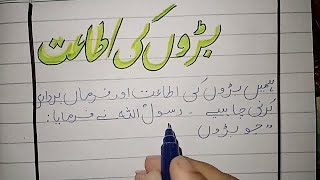 بڑوں کی اطاعت
ہمیں بڑوں کی اطاعت اور فرماں برداری
کرنی چاہیے ۔ رسول اللہ نے فرمایا :
"جو بڑوں